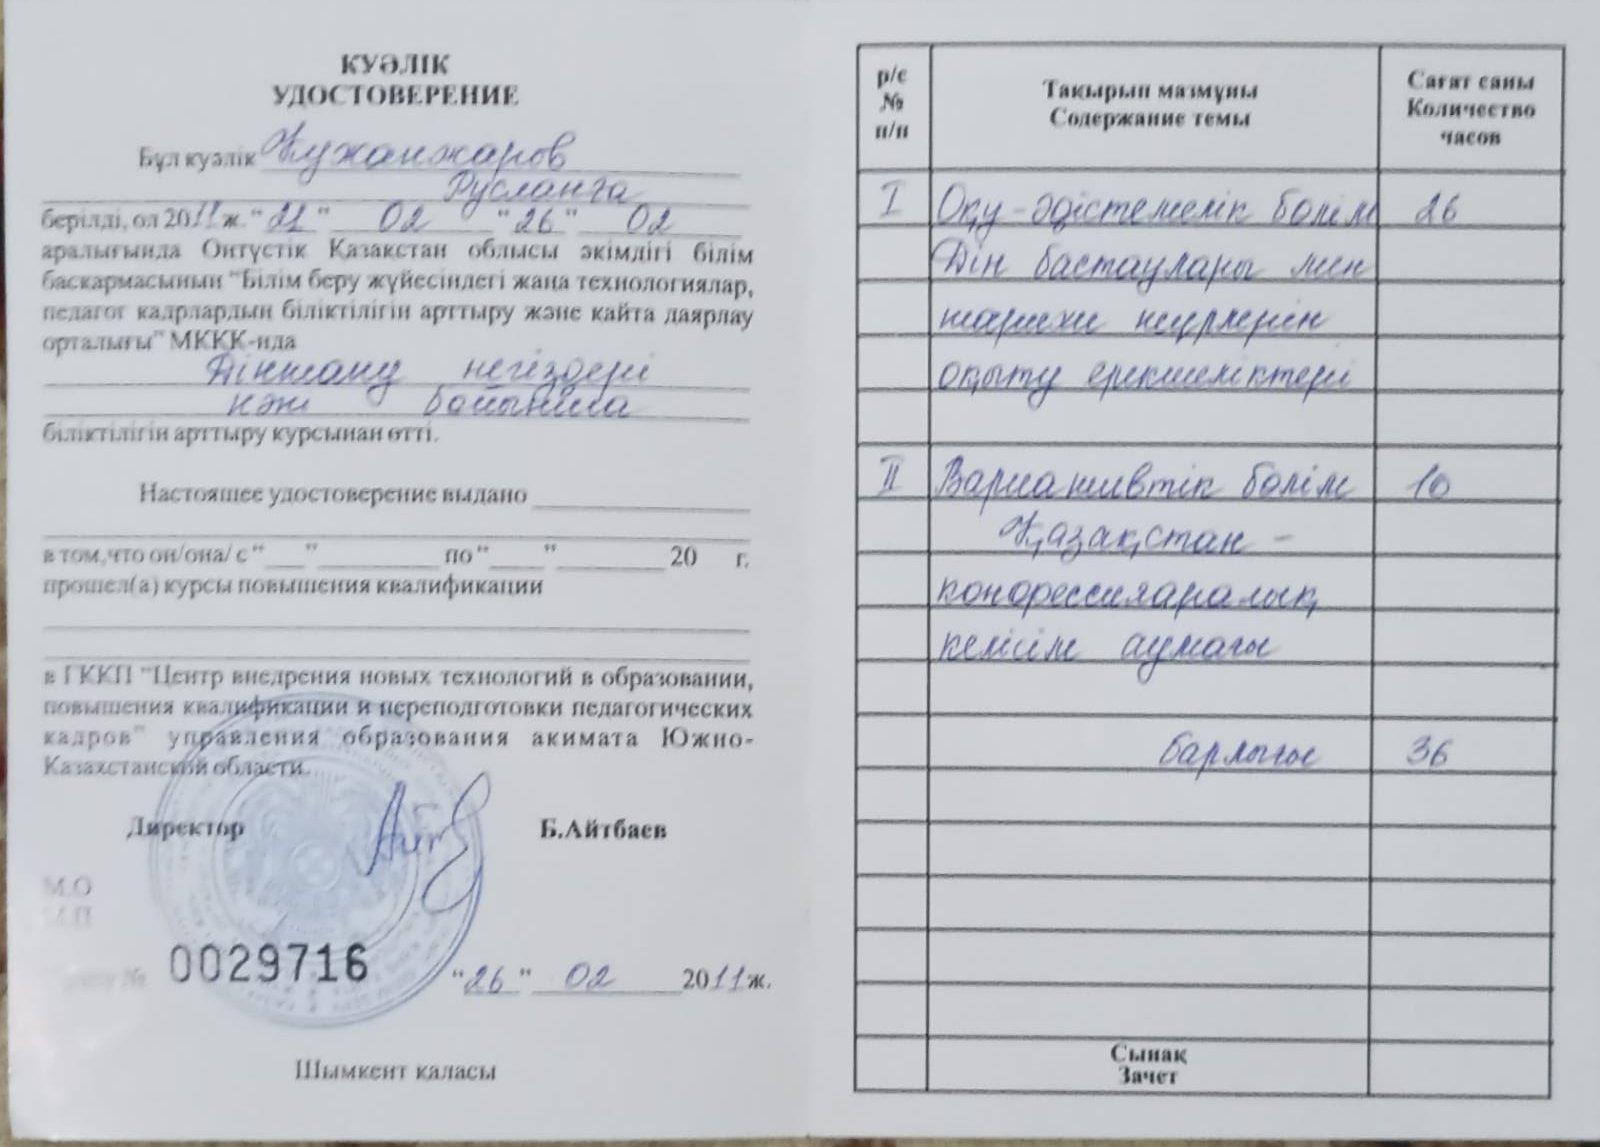 КУӘЛІК
УДОСТОВЕРЕНИЕ
Бұл куәлік Кужанжаров
Русланға
берілді, ол 2011 ж. "21" 02 "26" 02
аралығында Оңтүстік Қазақстан облысы әкімдігі білім
басқармасының "Білім беру жүйесіндегі жаңа технологиялар,
педагог кадрлардың біліктілігін арттыру және қайта даярлау
орталығы" МККК-нда
Дінтану негіздері
пәні бойынша
біліктілігін арттыру курсынан өтті.
Настоящее удостоверение выдано
в том, что он/она/ с "___" по "___" 20 г.
прошел(а) курсы повышения квалификации
в ГККП "Центр внедрения новых технологий в образовании,
повышения квалификации и переподготовки педагогических
кадров" управления образования акимата Южно-
Казахстанской области.
Директор Б.Айтбаев
М.О
М.П
№ 0029716 "26" 02 2011 ж.
Шымкент қаласы
р/с № п/п
Тақырып мазмұны
Содержание темы
Сағат саны
Количество
часов
I Оқу-әдістемелік бөлім 26
Дін бастаулары мен
тарихи түрлерін
оқыту ерекшеліктері
II Вариативтік бөлім 10
Қазақстан -
конфессияаралық
келісім аумағы
барлығы 36
Сынақ
Зачет